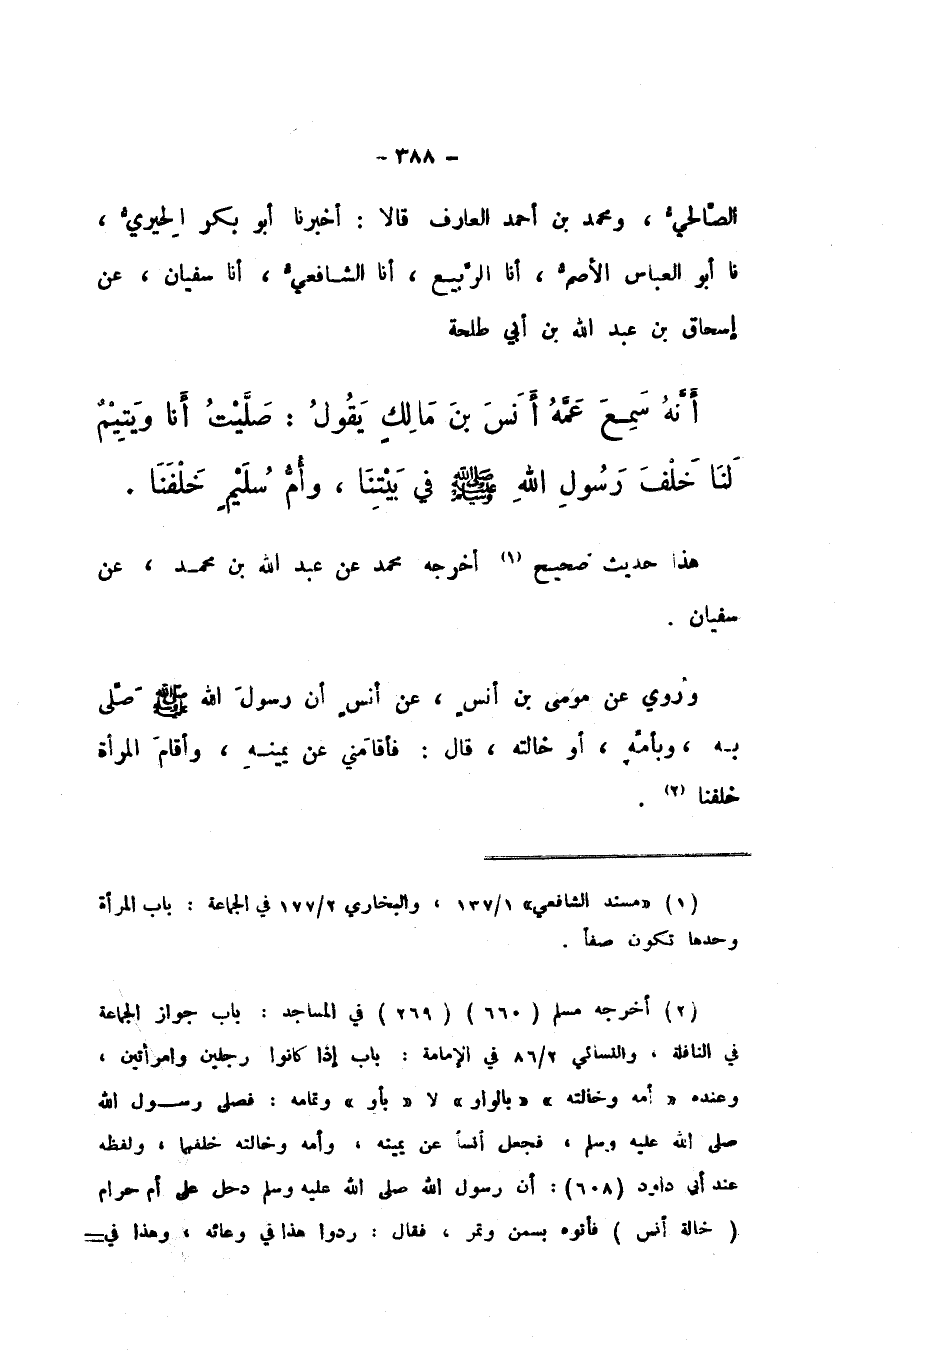 - ٣٨٨ -
الصَّالحيُّ ، ومحمد بن أحمد العارف قالا : أخبرنا أبو بكر الحِيري ،
نا أبو العباس الأصمُّ ، أنا الرَّبيع ، أنا الشافعيُّ ، أنا سفيان ، عن
إسحاق بن عبد الله بن أبي طلحة
أَنَّهُ سَمِعَ عَمَّهُ أَنَسَ بنَ مَالِكٍ يَقُولُ : صَلَّيْتُ أَنا ويَتِيْمٌ
لَنَا خَلْفَ رَسُولِ اللهِ ﷺ في بَيْتِنَا ، وأُمُّ سُلَيْمٍ خَلْفَنَا .
هذا حديث صحيح (١) أخرجه محمد عن عبد الله بن محمد ، عن
سفيان .
ورُوي عن موسى بن أنسٍ ، عن أنسٍ أن رسولَ الله ﷺ صَلّى
به ، وبأمِّهِ ، أو خالته ، قال : فأقامَني عن يمينهِ ، وأقامَ المرأة
خلفنا (٢) .
(١) «مسند الشافعي» ١٣٧/١ ، والبخاري ١٧٧/٢ في الجماعة : باب المرأة
وحدها تكون صفاً .
(٢) أخرجه مسلم ( ٦٦٠ ) ( ٢٦٩ ) في المساجد : باب جواز الجماعة
في النافلة ، والنسائي ٨٦/٢ في الإمامة : باب إذا كانوا رجلين وامرأتين ،
وعنده « أمه وخالته » «بالواو» لا « بأو » وتمامه : فصلى رسول الله
صلى الله عليه وسلم ، فجعل أنساً عن يمينه ، وأمه وخالته خلفها ، ولفظه
عند أبي داود (٦٠٨) : أن رسول الله صلى الله عليه وسلم دخل على أم حرام
( خالة أنس ) فأتوه بسمن وتمر ، فقال : ردوا هذا في وعائه ، وهذا في=